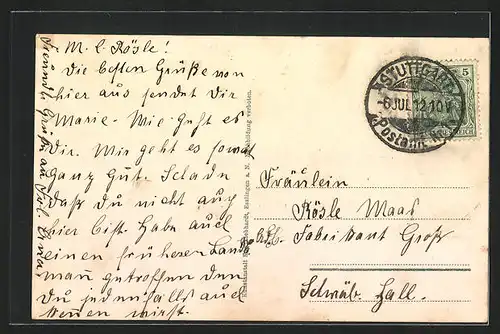 M. l. Rösle!
Die besten Grüße von
hier aus sendet Dir
Marie. Wie geht es
Dir. Mir geht es soweit
ganz gut. Schade
daß du nicht auch
hier bist. Habe auch
einen früheren Lands
mann getroffen den
du jedenfalls auch
kennen wirst.
Freundl. Grüße an Frl. Anna
Kunstanstalt Esslingen a. N. Nachbildung verboten.
STUTTGART
-6 JUL 12.10V
Postamt No
5
Fräulein
Rösle Maas
Adr. Fabrikant Groß
Schwäb. Hall.